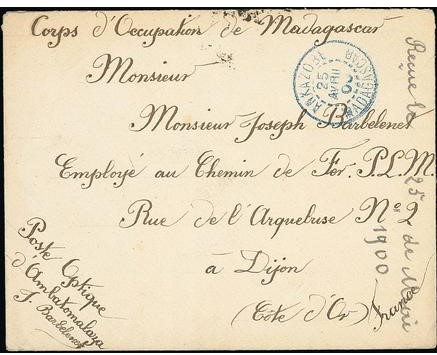 Corps d'Occupation de Madagascar
Monsieur
Monsieur Joseph Barbelenet
Employé au Chemin de Fer. P.L.M.
Rue de l'Arquebuse No 2
à Dijon
(Côte d'Or) France
Poste Optique
d'Ambatomalaza
J. Barbelenet
ANKAZOBE
25
AVRIL
00
MADAGASCAR
Reçue le 25 de Mai 1900